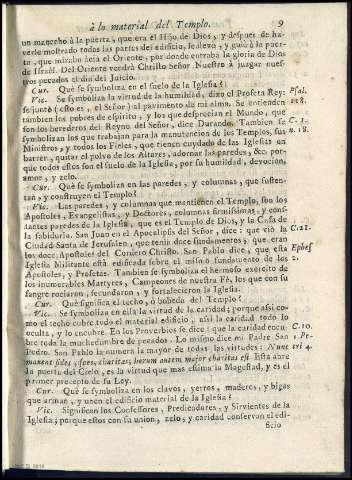 à lo material del Templo. 9
un mancebo à la puerta, que era el Hijo de Dios, y despues de ha-
verle mostrado todas las partes del edificio, le llevó, y guió à la puer-
ta, que miraba àcia el Oriente, por donde entra la gloria de Dios
de Israèl. Del Oriente vendrà Christo Señor Nuestro à juzgar nues-
tros pecados el dia del Juicio.
Cur. Què se symboliza en el suelo de la Iglesia?
Vic. Se symboliza la virtud de la humildad, dixo el Profeta Rey: Psal.
(esto es, el Señor) al pavimento de mi alma. Se entienden 118.
tambien los pobres de espiritu, y los que desprecian el Mundo, que
son los herederos del Reyno del Señor, dice Durando. Tambien se C. 1.
symbolizan los que trabajan para la manutencion de los Templos, sus n. 18.
Ministros, y todos los Fieles, que tienen cuydado de las Iglesias en
barrer, quitar el polvo de los Altares, adornar las paredes, &c. por-
que todos estos son el suelo de la Iglesia, por su humildad, devocion,
amor, y zelo.
Cur. Què se symboliza en las paredes, y columnas, que susten-
tan, y construyen el Templo?
Vic. Las paredes, y columnas que mantienen el Templo, son los
Apostoles, Evangelistas, y Doctores, columnas firmisimas, y cons-
tantes paredes de la Iglesia, que es el Templo de Dios, y la Casa de
la sabiduria. San Juan en el Apocalipsis del Señor, dice: que viò la C. 21.
Ciudad Santa de Jerusalen, que tenia doce fundamentos; que eran
los doce Apostoles del Cordero Christo. San Pablo dice, que esta Ephes
Iglesia Militante està edificada sobre el mismo fundamento de los 2.
Apostoles, y Profetas. Tambien se symboliza el hermoso exercito de
los inumerables Martyres, Campeones de nuestra Fè, los que con su
sangre rociaron, fecundaron, y fortalecieron la Iglesia.
Cur. Què significa el techo, ò bobeda del Templo?
Vic. Se symboliza en ella la virtud de la caridad; porque asi co-
mo el techo cubre todo el material edificio, asi la caridad todo lo
oculta, y lo encubre. En los Proverbios se dice: que la caridad encu- C. 10.
bre toda la muchedumbre de pecados. Lo mismo dice mi Padre San 1. Pe-
Pedro. San Pablo la numera la mayor de todas las virtudes: Nunc tri 4.
manent fides, spes, charitas; horum autem major charitas est. Esta abre
la puerta del Cielo, es la virtud que mas estima la Magestad, y es el
primer precepto de su Ley.
Cur. Què se symboliza en los clavos, yerros, maderos, y bigas
que arman, y unen el edificio material de la Iglesia?
Vic. Significan los Confesores, Predicadores, y Sirvientes de la
Iglesia; porque estos con su union, zelo, y caridad conservan el edi-
ficio